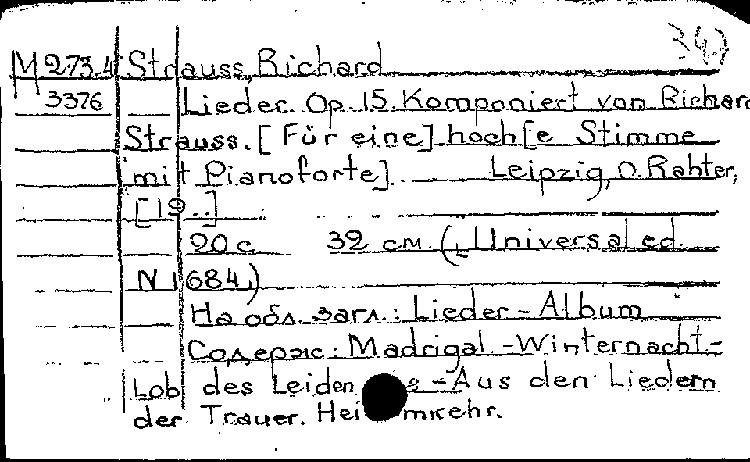 347
M273.4 Strauss, Richard
3376 Lieder. Op. 15. Komponiert von Richard
Strauss. [Für eine] hoh[e Stimme
mit Pianoforte]. Leipzig, D. Rahter,
[19..]
20 c. 32 см. („Universal ed.
N 1684)
На обл. загл.: Lieder-Album
Содерж: Madrigal-Winternacht-
Lob des Leidens-Aus den Liedern
der Trauer. Heimkehr.